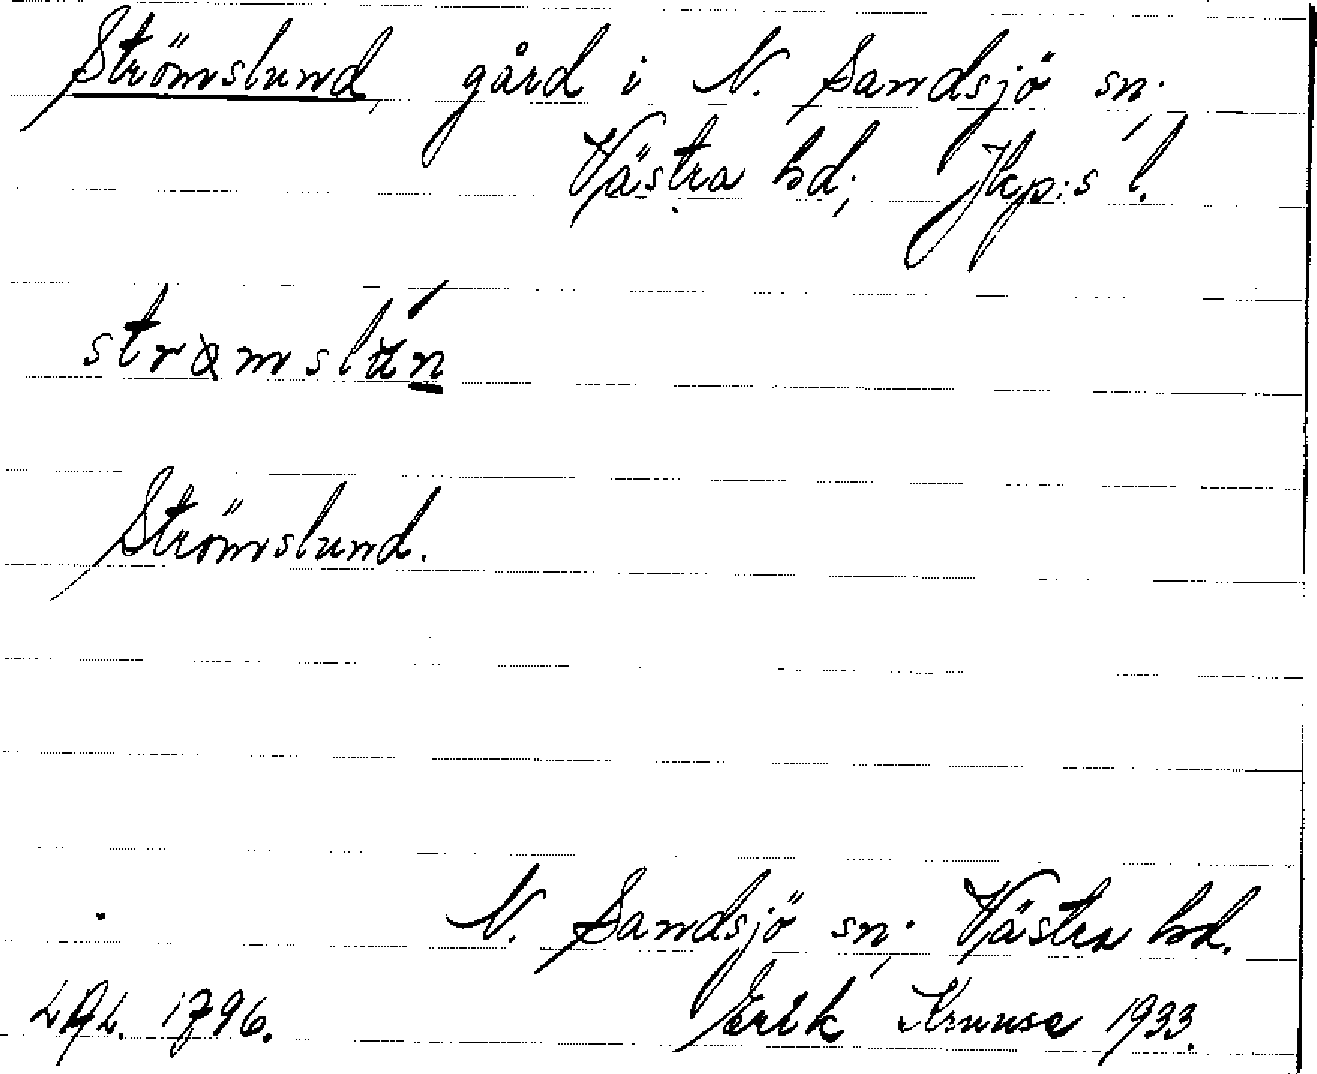 Strömslund, gård i N. Sandsjö sn;
Västra hd; Jkp:s l.
Strömslund.
N. Sandsjö sn; Västra hd.
1796. Erik Kruuse 1933.